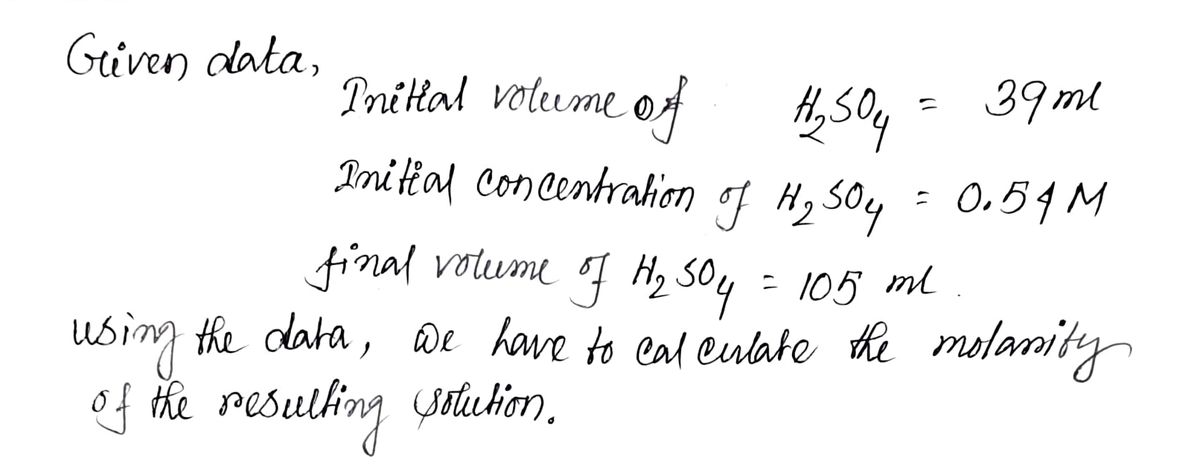 Given data,
Initial volume of H₂SO₄ = 39 ml
Initial concentration of H₂SO₄ = 0.54 M
final volume of H₂SO₄ = 105 ml.
using the data, we have to calculate the molarity
of the resulting solution.